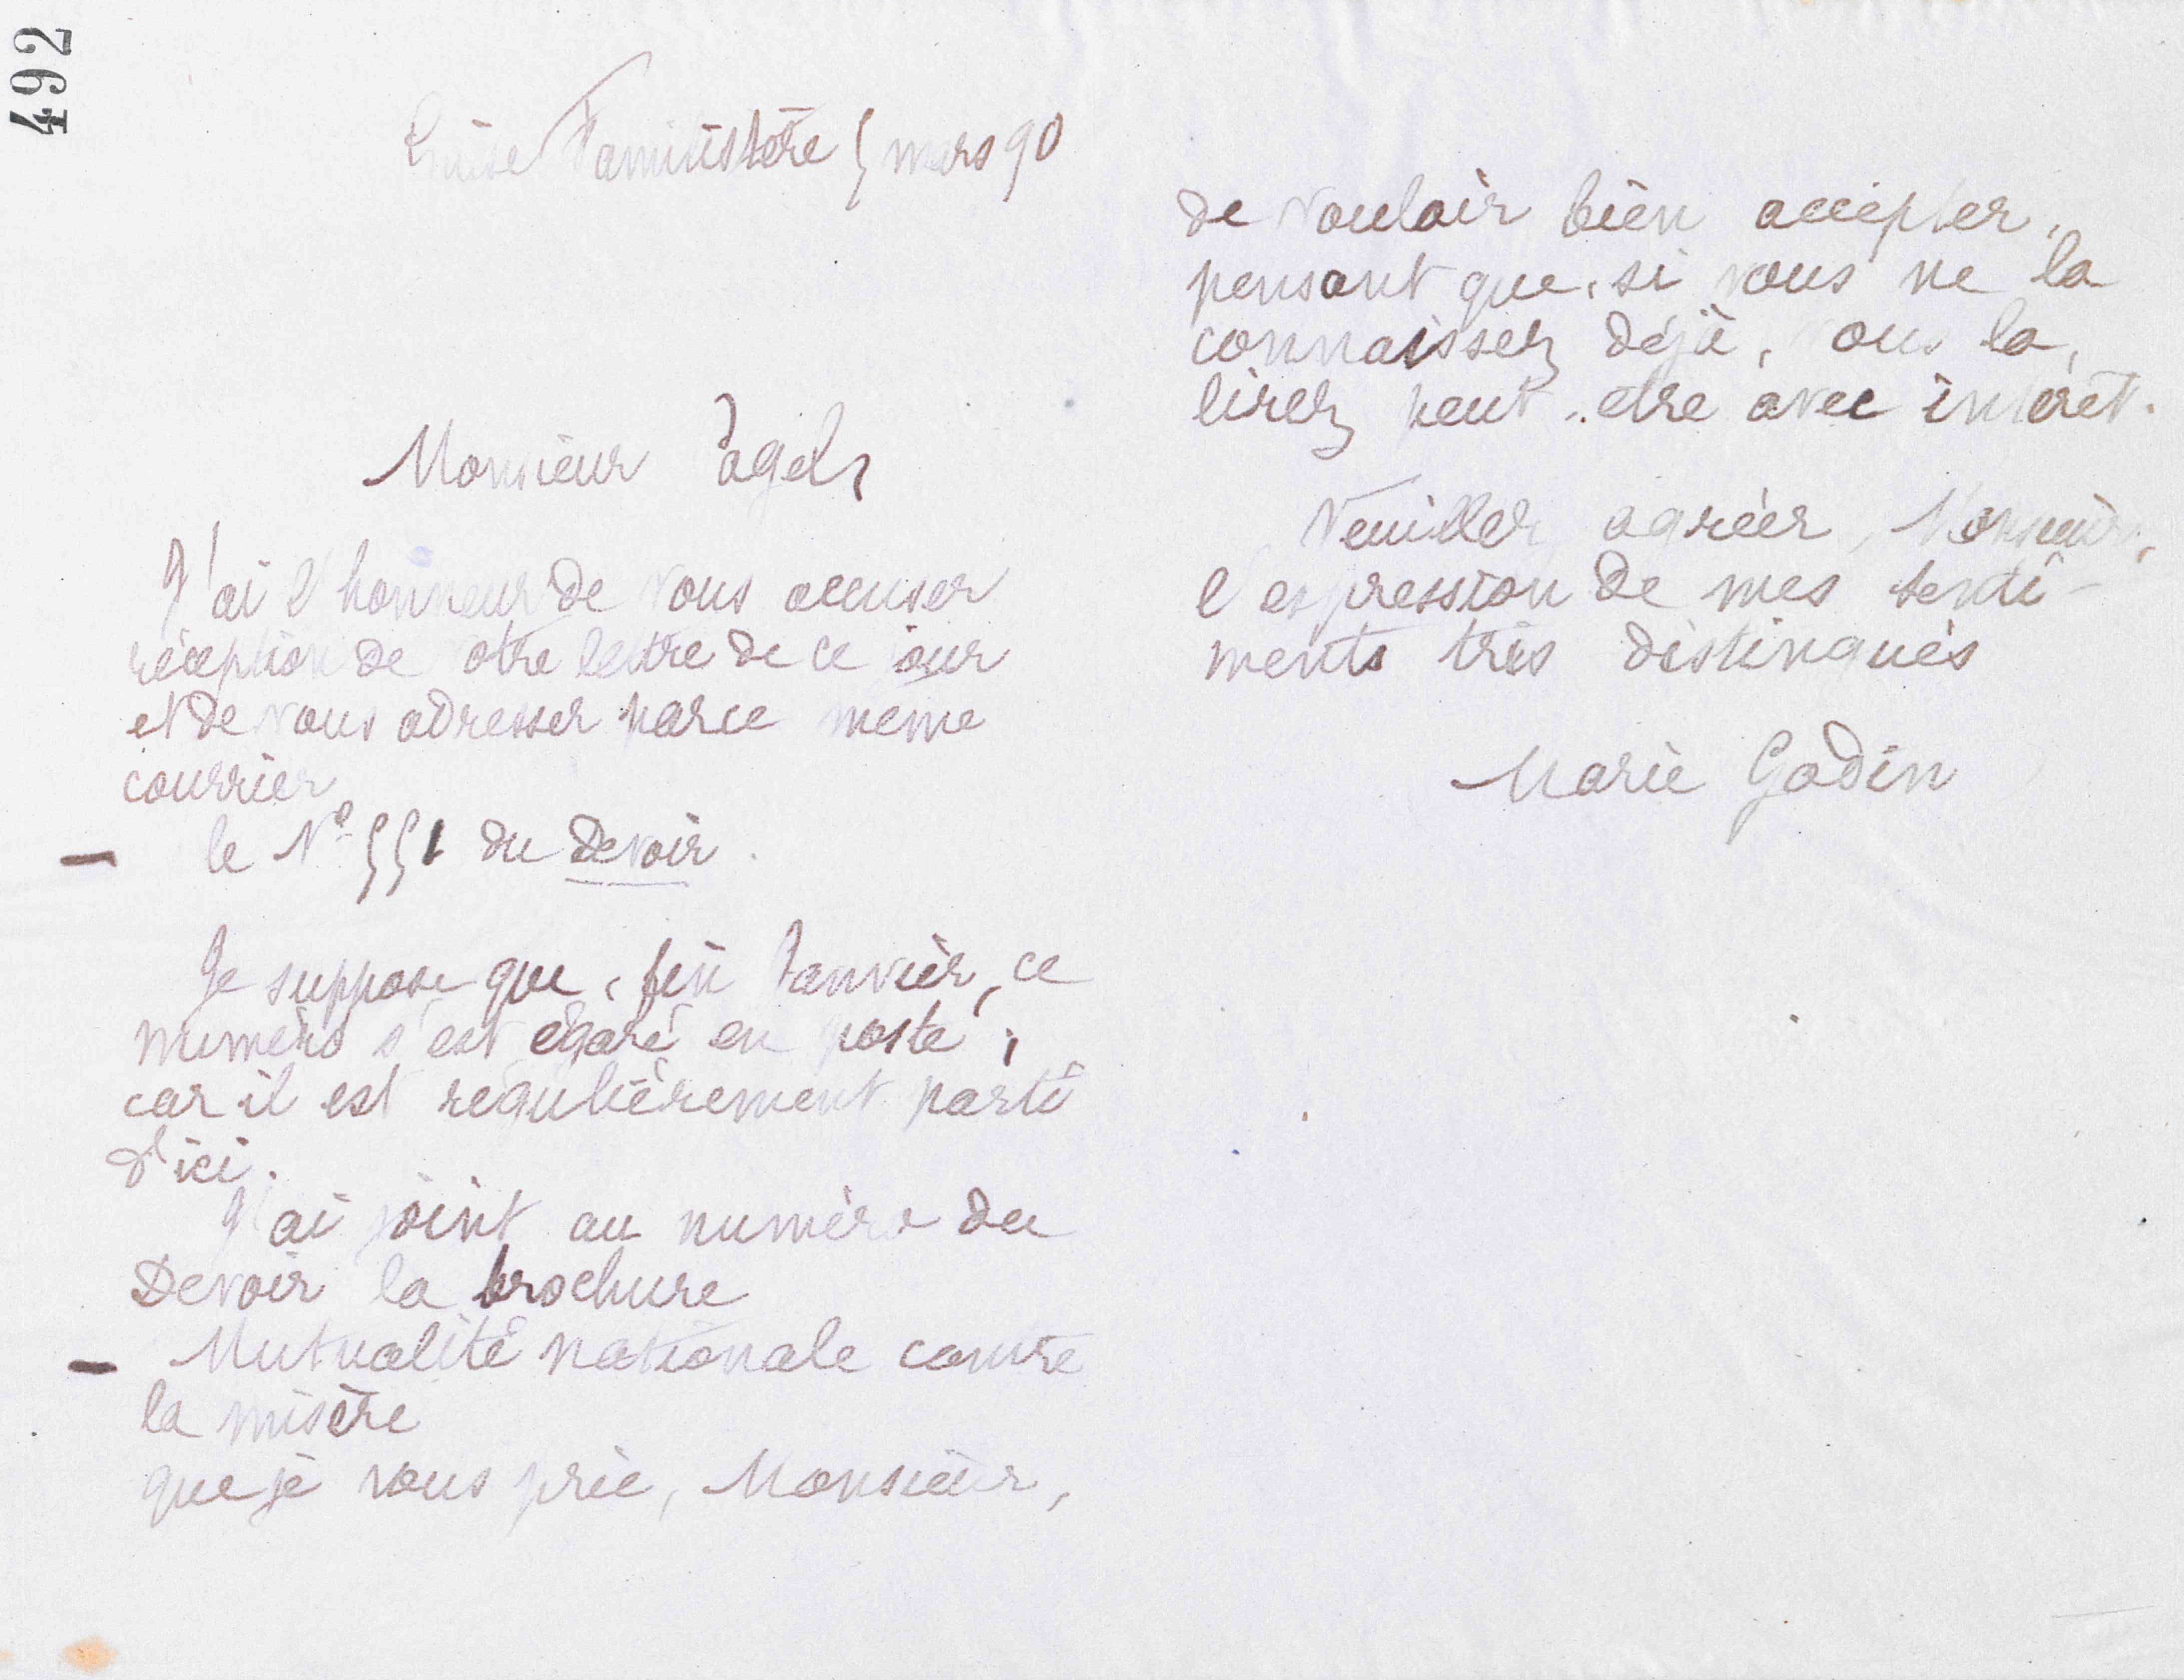 492
Guise Familistère 5 mars 90
Monsieur Pagès
J'ai l'honneur de vous accuser
réception de votre lettre de ce jour
et de vous adresser par ce même
courrier
— le N° 551 du Devoir.
Je suppose que, fin Janvier, ce
numéro s'est égaré en poste,
car il est régulièrement parti
d'ici.
J'ai joint au numéro du
Devoir la brochure
— Mutualité nationale contre
la misère
que je vous prie, Monsieur,
de vouloir bien accepter,
pensant que, si vous ne la
connaissez déjà, vous la,
lirez peut-être avec intérêt.
Veuillez agréer, Monsieur,
l'expression de mes senti-
ments très distingués
Marie Godin